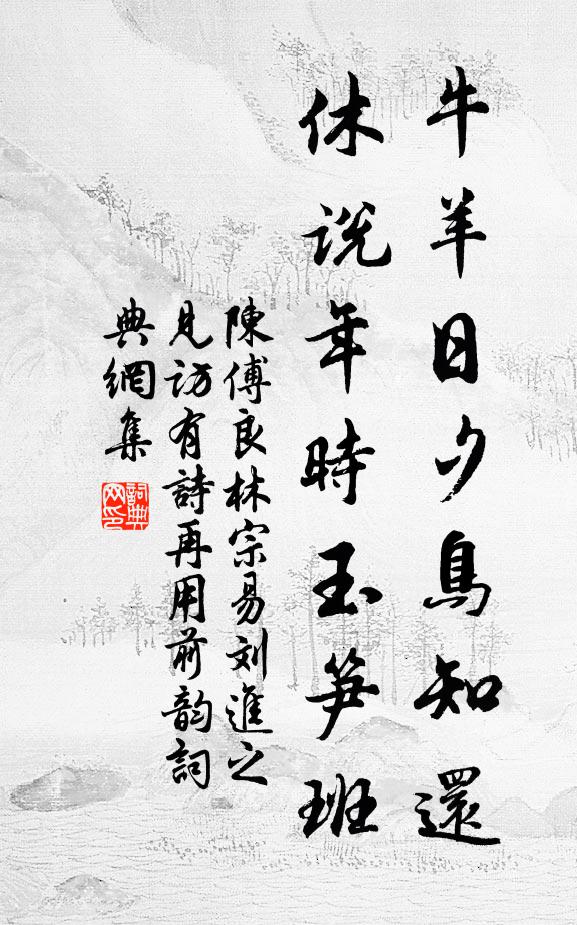 牛羊日夕鳥知還
休说年時玉笋班
陳傅良林宗易刘進之
見訪有詩再用前韵詞
典網集
詞典
网印